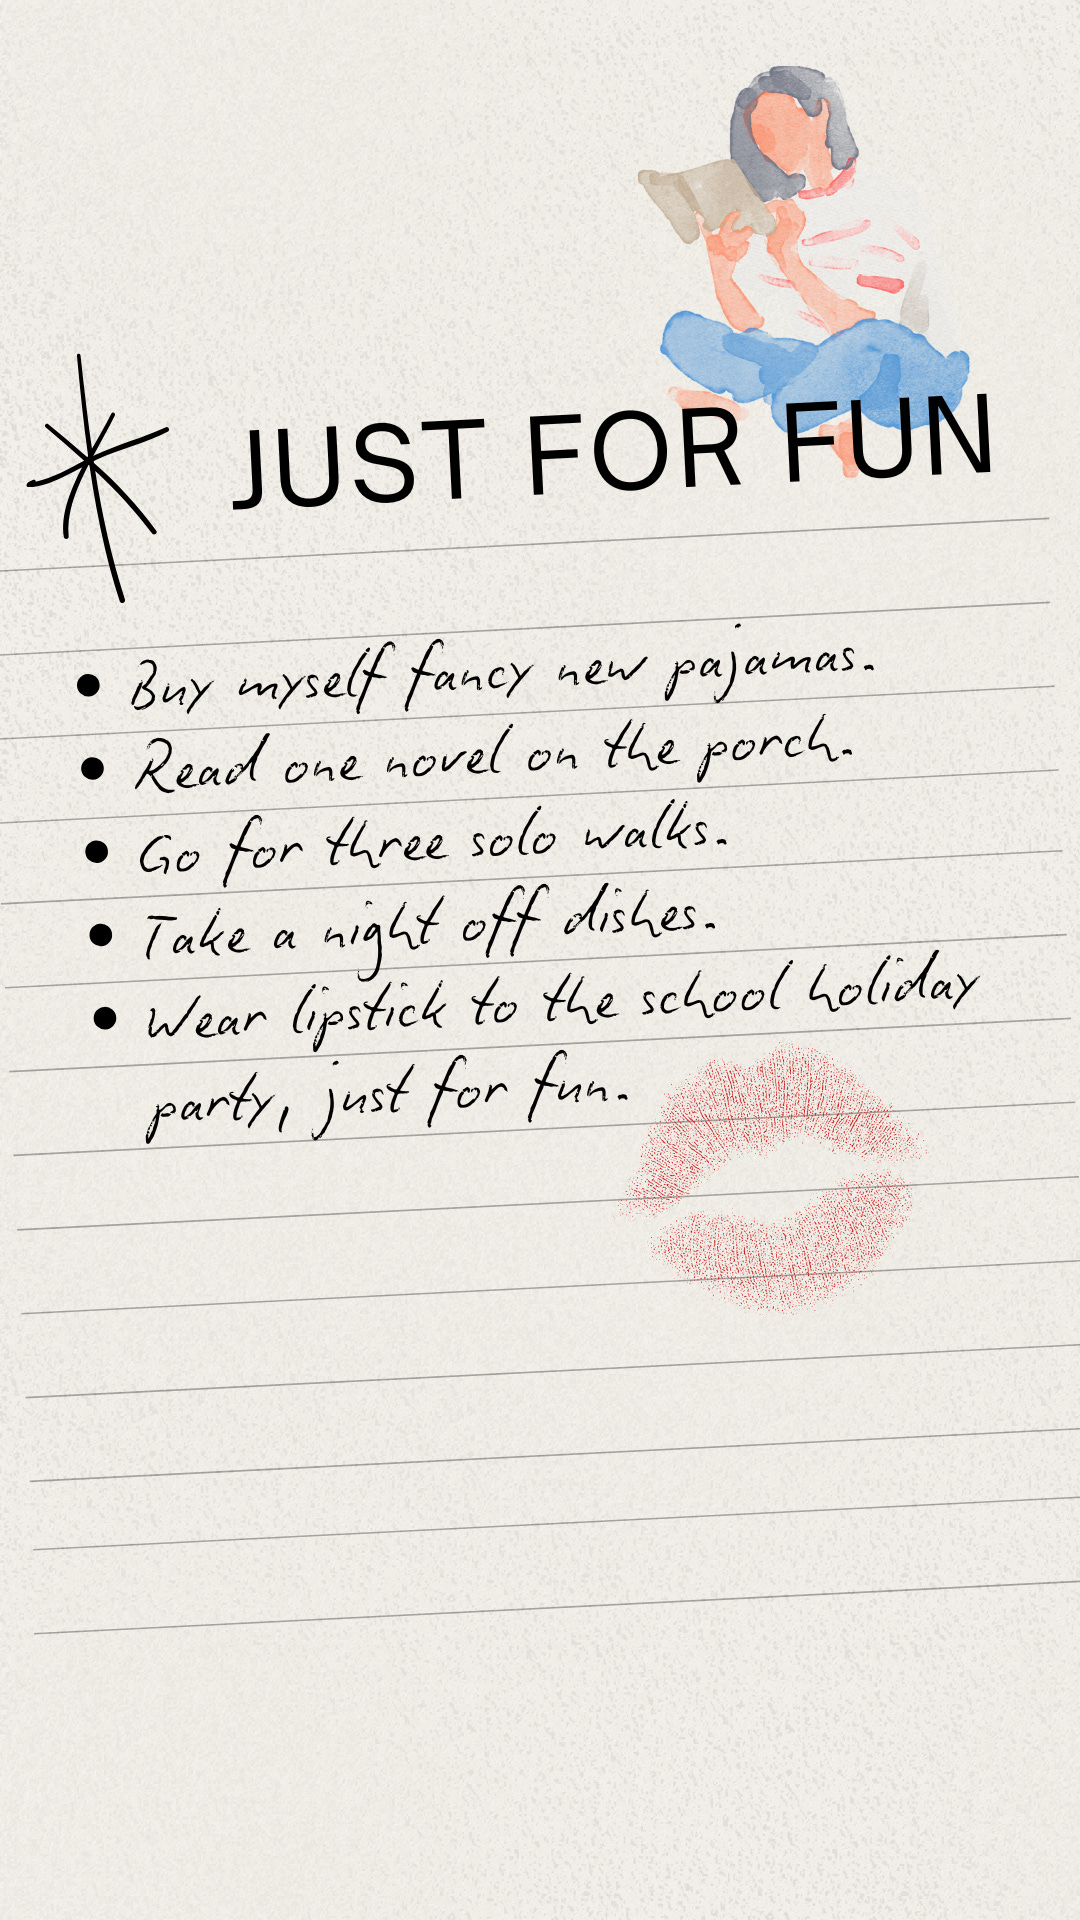 JUST FOR FUN
• Buy myself fancy new pajamas.
• Read one novel on the porch.
• Go for three solo walks.
• Take a night off dishes.
• Wear lipstick to the school holiday
party, just for fun.